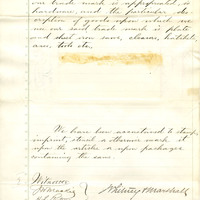 our trade mark is appropriated, is
hardware, and the particular de-
scription of goods upon which we
use our said trade mark is plate
and cast iron saws, cleaver, hatchets
axe, tools etc.
We have been accustomed to stamp
imprint, stencil or otherwise mark it
upon the article or upon packages
containing the same.
Witnesses
Whitney & Marshall